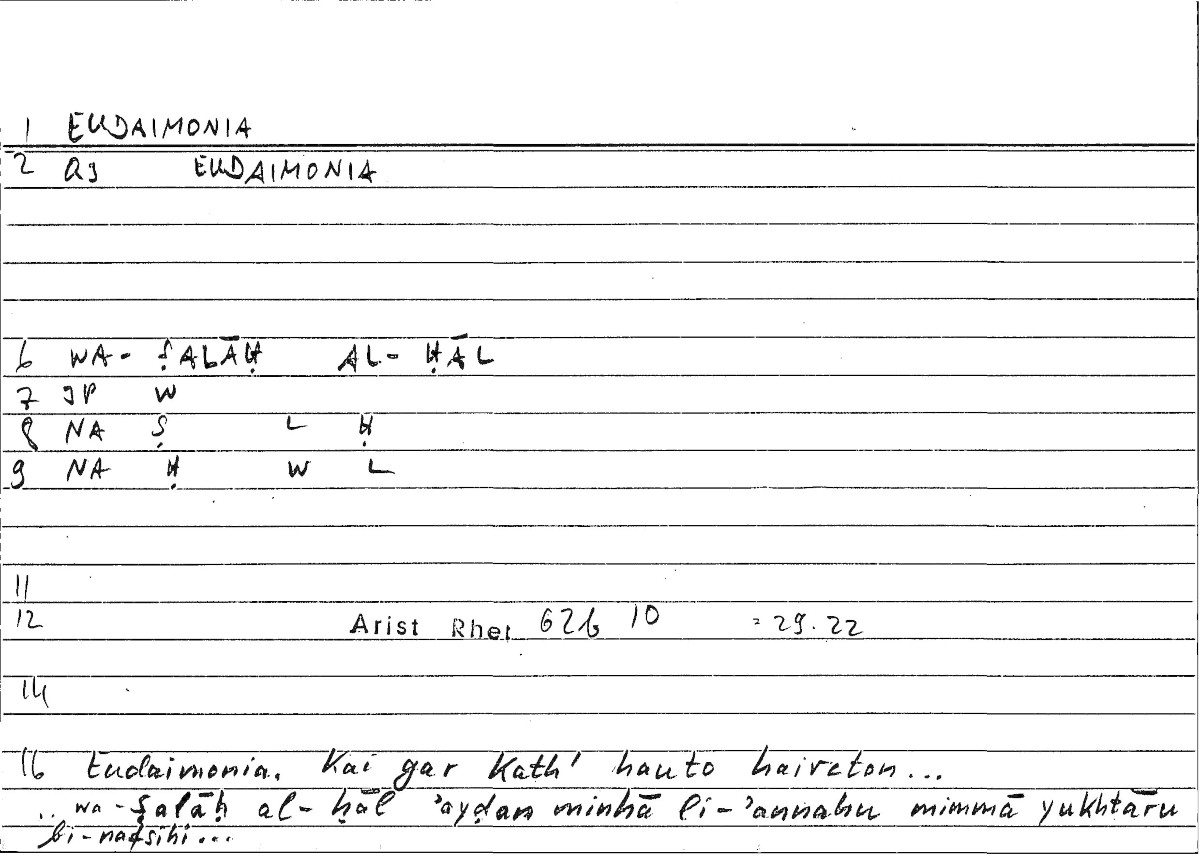 1 EUDAIMONIA
2 QJ EUDAIMONIA
6 WA- ṢALĀḤ AL- ḤĀL
7 JP W
8 NA Ṣ L Ḥ
9 NA Ḥ W L
11
12 Arist Rhet 62b 10 = 29.22
14
16 Eudaimonia. Kai gar kath' hauto haireton...
.. wa-ṣalāḥ al-ḥāl 'ayḍan minhā li-'annahu mimmā yukhtāru
bi-nafsihi...